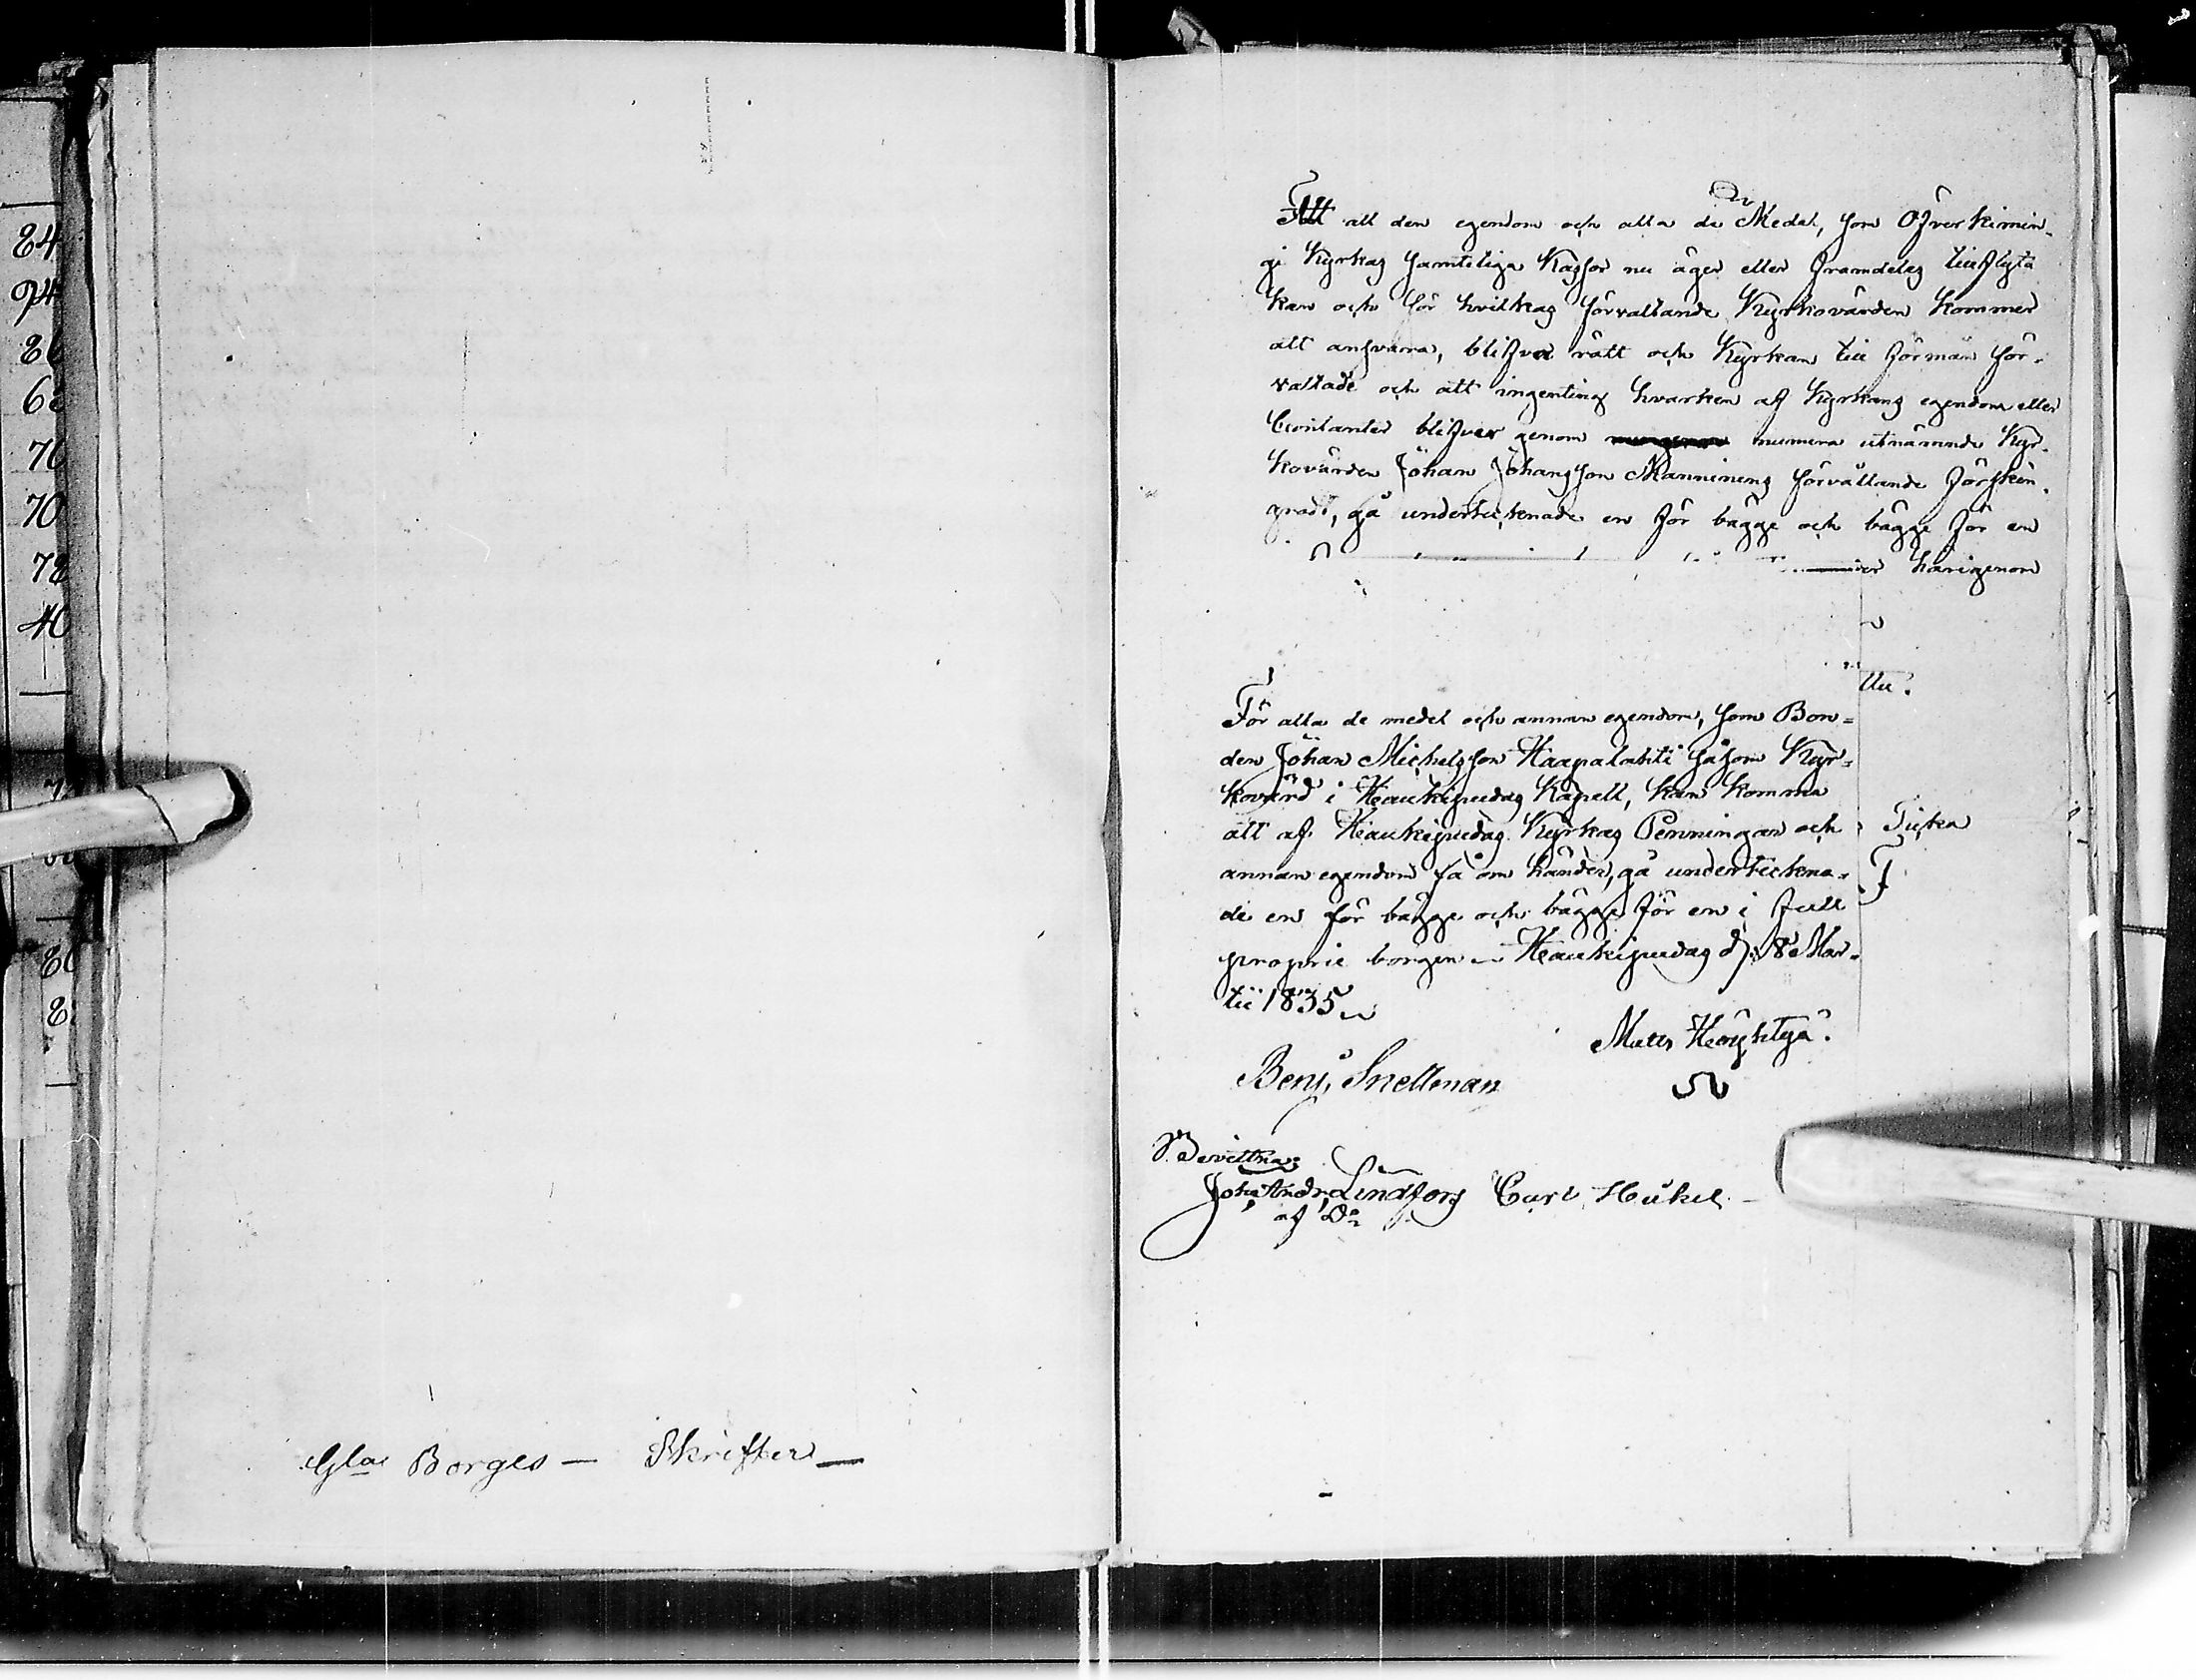 84
94
86
70
70
78
40
80
Gla Borges — Skrifter —
Att all den egendom och alla de Medel, som Öfverkimin-
gi Kyrkas samteliga Kassor nu äger eller framdeles tillflyta
kan och för hvilkas förvaltande Kyrkovärden kommer
att ansvara, blifva rätt och Kyrkan till förmån för-
valtade och att ingenting hvarken af Kyrkans egendom eller
Contanter blifver genom numera utnämnde Kyr-
kovärden Johan Johansson Manninens förvållande förskin-
gradt, gå undertecknade en för bägge och bägge för en
härigenom
För alla de medel och annan egendom, som Bon=
den Johan Michelsson Haapalahti såsom Kyr=
kovärd i Haukipudas Kapell, kan komma
att af Haukipudas Kyrkas Penningar och
annan egendom få om händer, gå underteckna-
de en för bägge och bägge för en i full
proprie borgen — Haukipudas d. 8 Mar-
tii 1835
Matts Höyhtyä.
Benj. Snellman
Bevittna:
Joh. Andr. Lindfors Carl Hukel